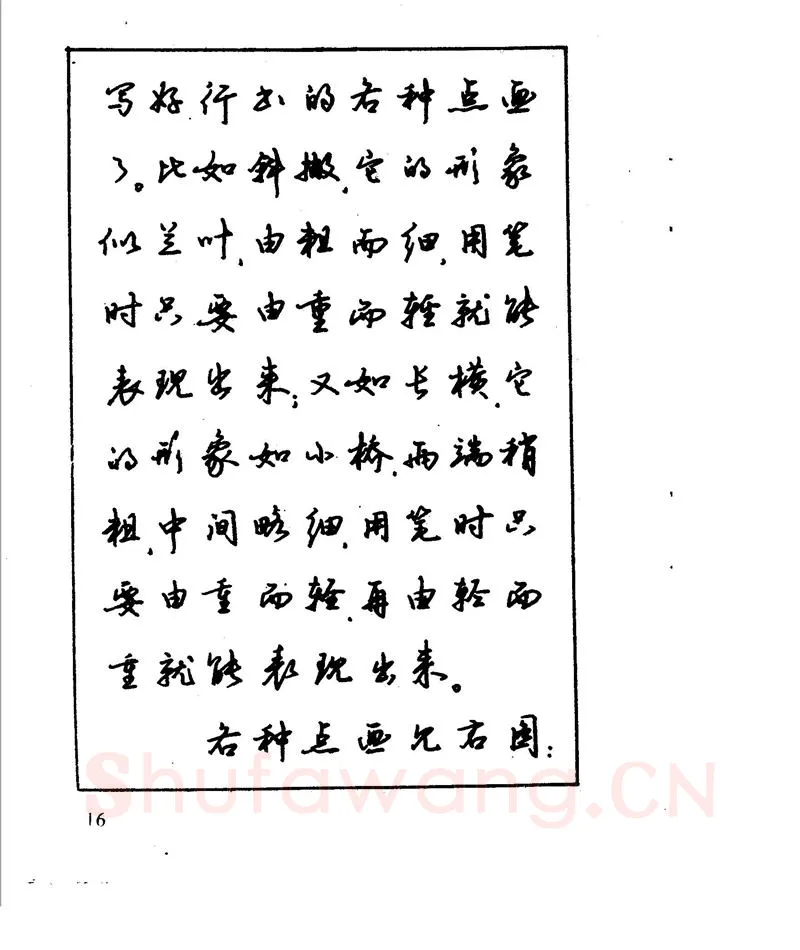 写好行书的各种点画
了。比如斜撇,它的形象
似兰叶,由粗而细,用笔
时只要由重而轻就能
表现出来;又如长横,它
的形象如小桥,两端稍
粗,中间略细,用笔时只
要由重而轻,再由轻而
重就能表现出来。
各种点画见右图:
Shufawang.CN
16